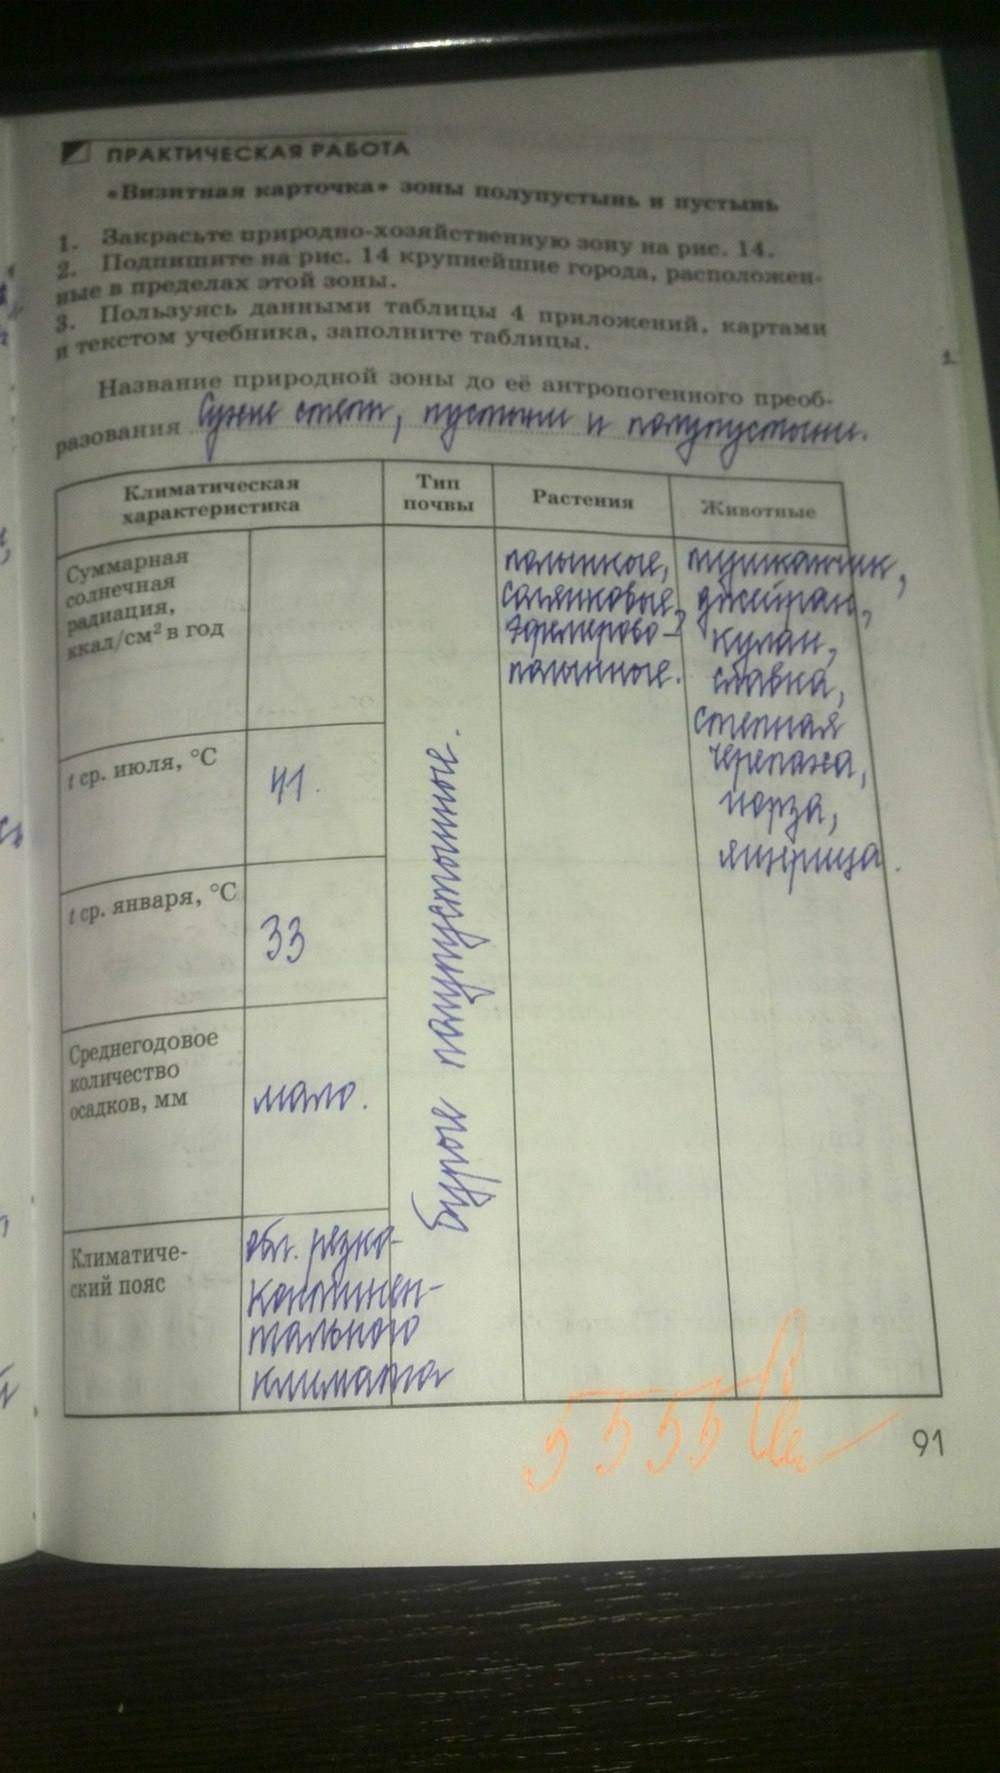 ПРАКТИЧЕСКАЯ РАБОТА
«Визитная карточка» зоны полупустынь и пустынь
1. Закрасьте природно-хозяйственную зону на рис. 14.
2. Подпишите на рис. 14 крупнейшие города, расположен-
ные в пределах этой зоны.
3. Пользуясь данными таблицы 4 приложений, картами
и текстом учебника, заполните таблицы.
Название природной зоны до её антропогенного преоб-
разования Сухие степи, пустыни и полупустыни.
Климатическая
характеристика
Тип
почвы
Растения
Животные
Суммарная
солнечная
радиация,
ккал/см² в год
t ср. июля, °C
41.
t ср. января, °C
33
Среднегодовое
количество
осадков, мм
мало.
Климатиче-
ский пояс
обл. резко-
континен-
тального
климата
Бурые полупустынные.
полынные,
солянковые,
эфемерово-
полынные.
тушканчик,
джейран,
кулан,
славка,
степная
черепаха,
гюрза,
ящерица.
5 5 5 5
91